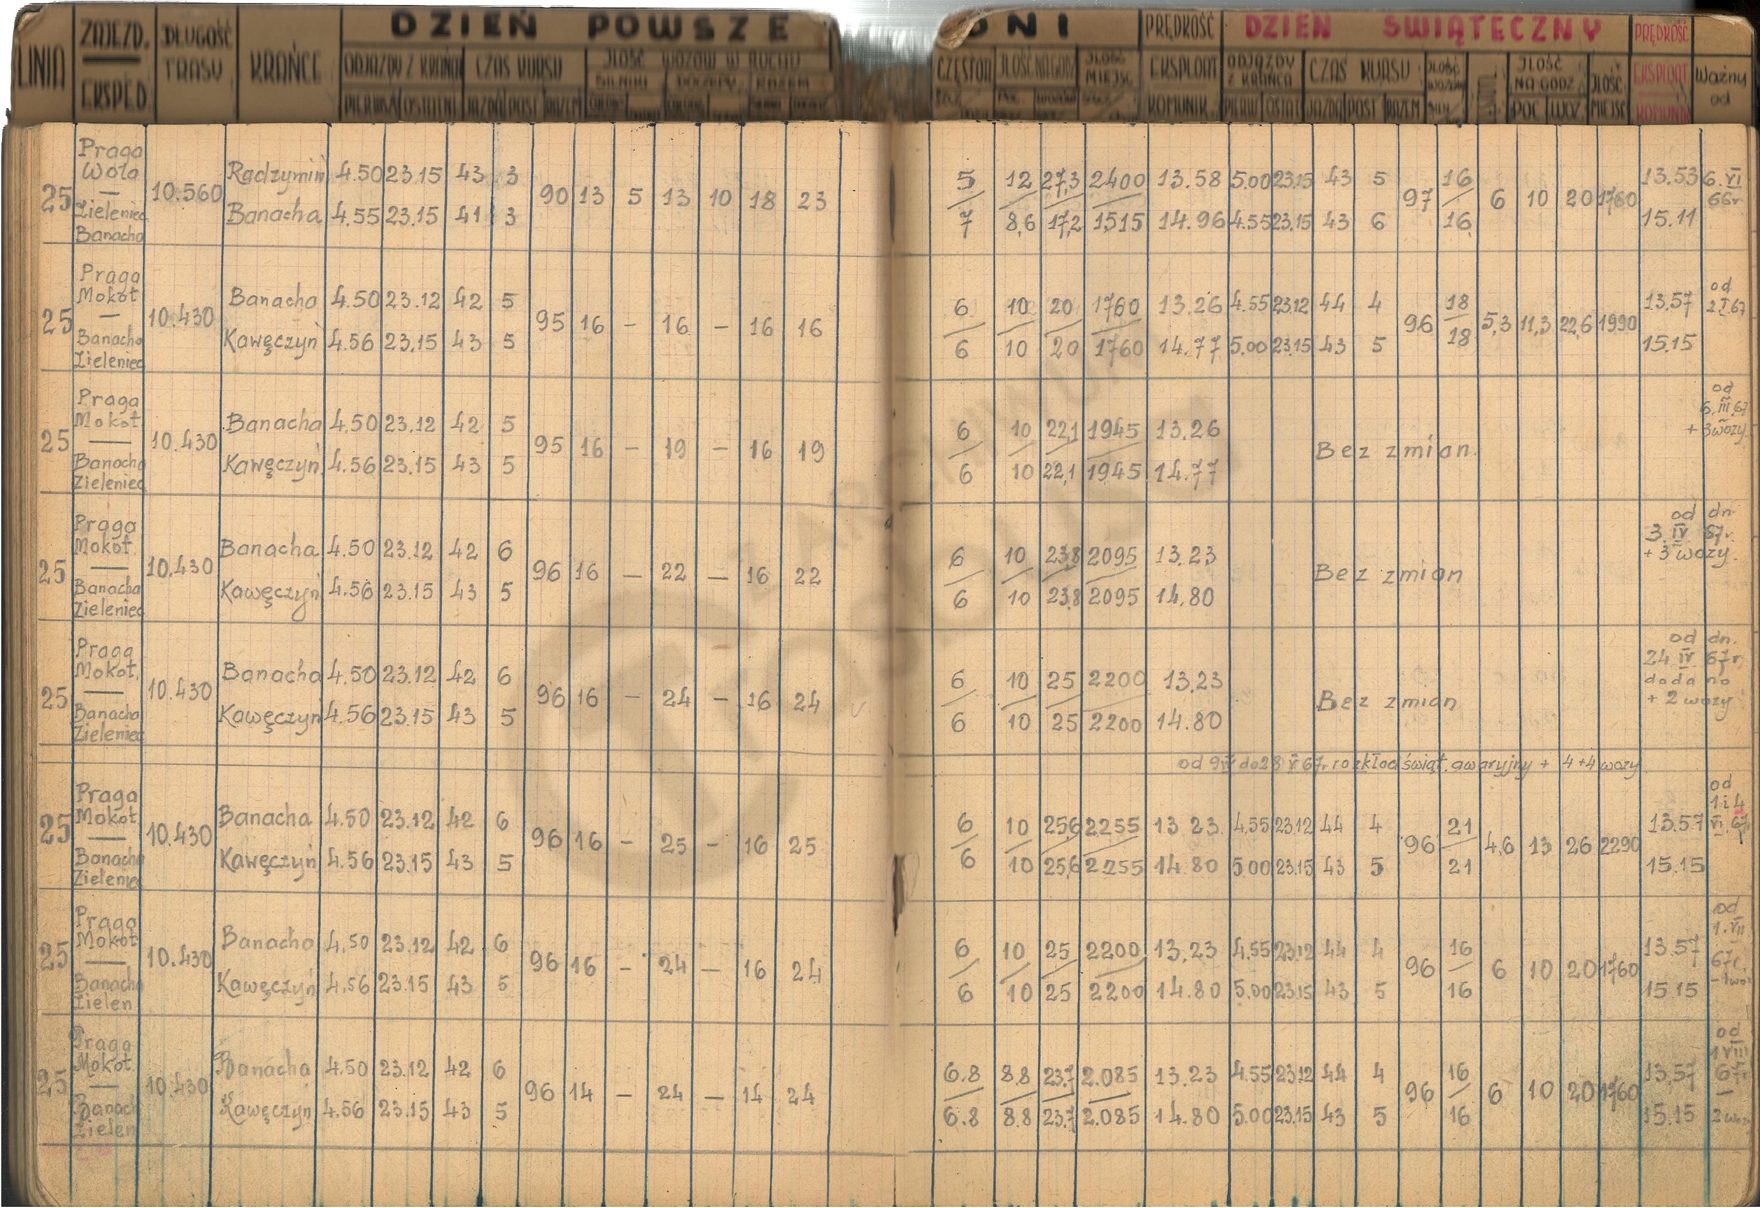 LINIA ZAJEZD. EKSPED. DŁUGOŚĆ TRASY KRAŃCE DZIEŃ POWSZE DNI PRĘDKOŚĆ DZIEŃ ŚWIĄTECZNY PRĘDKOŚĆ
ODJAZDY Z KRAŃCA CZAS KURSU ILOŚĆ WOZÓW W RUCHU ILOŚĆ NA GODZ. ILOŚĆ MIEJSC EKSPLOAT. KOMUNIK. ODJAZDY Z KRAŃCA CZAS KURSU ILOŚĆ NA GODZ. ILOŚĆ MIEJSC EKSPLOAT. Ważny od
OSTATNI JAZDA POST RAZEM PIERW OSTAT JAZDA POST RAZEM POC WOZ
Praga
Wola
—
Zieleniec
Banacha
25 10.560
Radzymin 4.50 23.15 43 3
Banacha 4.55 23.15 41 3
90 13 5 13 10 18 23
5 12 27,3 2400 13.58 5.00 23.15 43 5 16 13.53
7 8,6 17,2 1515 14.96 4.55 23.15 43 6 16 15.11
97 6 10 20 1760
6. VI
66r
Praga
Mokot
—
Banacha
Zieleniec
25 10.430
Banacha 4.50 23.12 42 5
Kawęczyń 4.56 23.15 43 5
95 16 – 16 – 16 16
6 10 20 1760 13.26 4.55 23.12 44 4 18 13.57
6 10 20 1760 14.77 5.00 23.15 43 5 18 15.15
96 5,3 11,3 22,6 1990
od
2.I.67
Praga
Mokot
—
Banacha
Zieleniec
25 10.430
Banacha 4.50 23.12 42 5
Kawęczyń 4.56 23.15 43 5
95 16 – 19 – 16 19
6 10 22,1 1945 13.26
6 10 22,1 1945 14.77
Bez zmian
od
6.III.67
+ 3 wozy
Praga
Mokot.
—
Banacha
Zieleniec
25 10.430
Banacha 4.50 23.12 42 6
Kawęczyń 4.56 23.15 43 5
96 16 – 22 – 16 22
6 10 23,8 2095 13.23
6 10 23,8 2095 14.80
Bez zmian
od dn.
3. IV 67r.
+ 3 wozy.
Praga
Mokot.
—
Banacha
Zieleniec
25 10.430
Banacha 4.50 23.12 42 6
Kawęczyń 4.56 23.15 43 5
96 16 – 24 – 16 24
6 10 25 2200 13.23
6 10 25 2200 14.80
Bez zmian
od dn.
24 IV 67r.
dodano
+ 2 wozy
rozkład świąt. awaryjny + 4+4 wozy
Praga
Mokot.
—
Banacha
Zieleniec
25 10.430
Banacha 4.50 23.12 42 6
Kawęczyń 4.56 23.15 43 5
96 16 – 25 – 16 25
6 10 25,6 2255 13.23 4.55 23.12 44 4 21 13.57
6 10 25,6 2255 14.80 5.00 23.15 43 5 21 15.15
96 4,6 13 26 2290
od
1 i 4
VI. 67
Praga
Mokot
—
Banacha
Zielen
25 10.430
Banacha 4.50 23.12 42 6
Kawęczyń 4.56 23.15 43 5
96 16 – 24 – 16 24
6 10 25 2200 13.23 4.55 23.12 44 4 16 13.57
6 10 25 2200 14.80 5.00 23.15 43 5 16 15.15
96 6 10 20 1760
od
1.VII
67r.
Praga
Mokot.
—
Banach
Zielen
25 10.430
Banacha 4.50 23.12 42 6
Kawęczyń 4.56 23.15 43 5
96 14 – 24 – 14 24
6.8 8.8 23.7 2.085 13.23 4.55 23.12 44 4 16 13.57
6.8 8.8 23.7 2.085 14.80 5.00 23.15 43 5 16 15.15
96 6 10 20 1760
od
1 VIII
67r
—